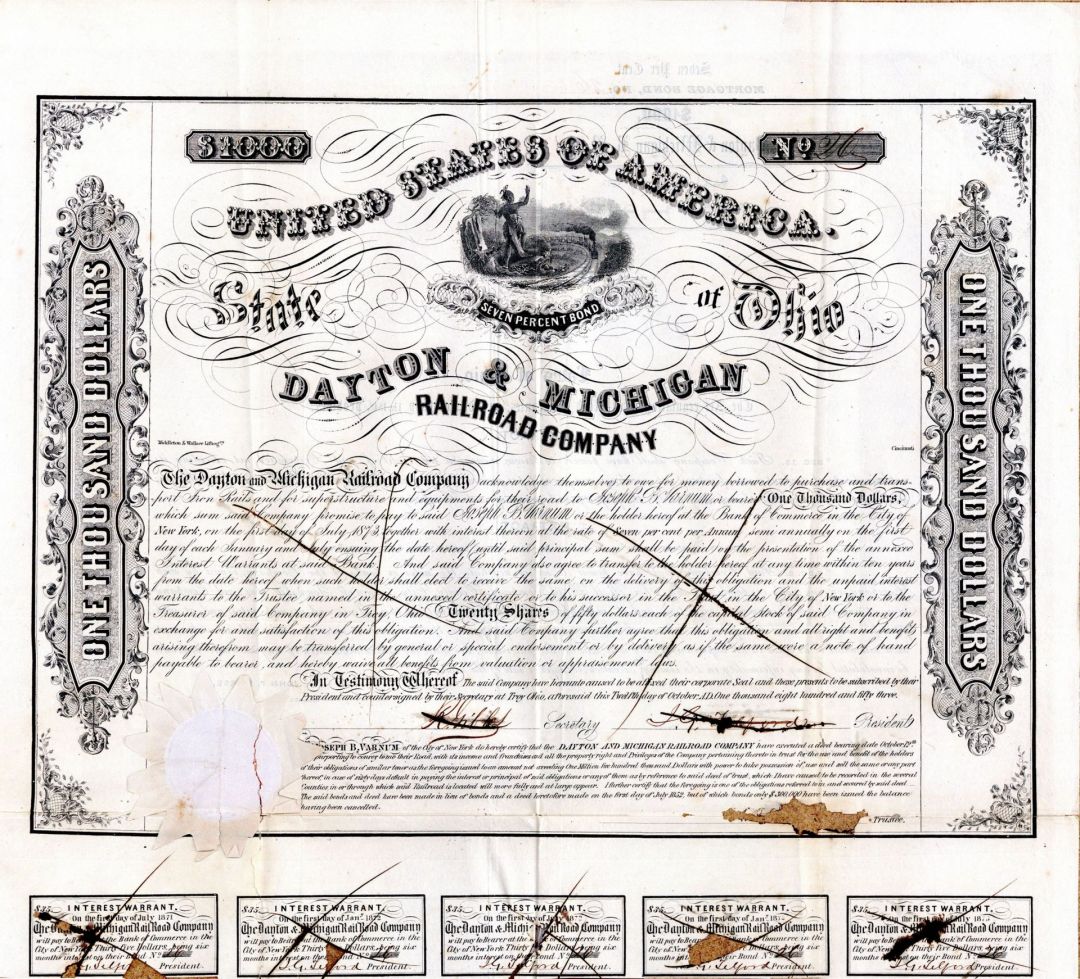 $1000
No. 26
UNITED STATES OF AMERICA.
State of Ohio
SEVEN PERCENT BOND
DAYTON & MICHIGAN
RAILROAD COMPANY
ONE THOUSAND DOLLARS
ONE THOUSAND DOLLARS
Middleton & Wallace Lithogrs.
Cincinnati
The Dayton and Michigan Railroad Company acknowledge themselves to owe for money borrowed to purchase and trans-
port Iron Rails and for superstructure and equipments for their road to Joseph B. Varnum or bearer One Thousand Dollars,
which sum said Company promise to pay to said Joseph B. Varnum or the holder hereof at the Bank of Commerce in the City of
New York, on the first day of July 1873, together with interest thereon at the rate of seven per cent per Annum semi annually on the first
day of each January and July ensuing the date hereof until said principal sum shall be paid on the presentation of the annexed
Interest Warrants at said Bank. And said Company also agree to transfer to the holder hereof at any time within ten years
from the date hereof when such holder shall elect to receive the same, on the delivery of this obligation and the unpaid interest
warrants to the Trustee named in the annexed certificate or to his successor in the Trust in the City of New York or to the
Treasurer of said Company in Troy, Ohio, Twenty Shares of fifty dollars each of the capital stock of said Company in
exchange for and satisfaction of this obligation. And said Company further agree that this obligation and all right and benefits
arising therefrom may be transferred by general or special endorsement or by delivery as if the same were a note of hand
payable to bearer, and hereby waive all benefits from valuation or appraisement laws.
In Testimony Whereof The said Company have hereunto caused to be affixed their corporate Seal and these presents to be subscribed by their
President and countersigned by their Secretary at Troy Ohio, aforesaid this Twelfth day of October, A.D. One thousand eight hundred and fifty three.
Secretary
President
SEPH B. VARNUM of the City of New York do hereby certify that the DAYTON AND MICHIGAN RAILROAD COMPANY have executed a deed bearing date October 12th
purporting to convey to me their Road, with its income and franchises and all the property right and Privileges of the Company pertaining thereto in trust for the use and benefit of the holders
of their obligations of similar tenor as the foregoing issued to an amount not exceeding One Million Five hundred thousand Dollars with power to take possession of use and sell the same or any part
thereof, in case of sixty days default in paying the interest or principal of said obligations or any of them as by reference to said deed of trust, which I have caused to be recorded in the several
Counties in or through which said Railroad is located will more fully and at large appear. I further certify that the foregoing is one of the obligations referred to in and secured by said deed
The said bonds and deed have been made in lieu of bonds and a deed heretofore made on the first day of July 1852, but of which bonds only $300,000 have been issued the balance
having been cancelled.
Trustee.
$35. INTEREST WARRANT.
On the first day of July 1871
The Dayton & Michigan Rail Road Company
will pay to Bearer at the Bank of Commerce in the
City of New York Thirty Five Dollars, being six
months interest on their Bond No.
President.
$35. INTEREST WARRANT.
On the first day of Jany. 1872
The Dayton & Michigan Rail Road Company
will pay to Bearer at the Bank of Commerce in the
City of New York Thirty Dollars, being six
months interest on their Bond No.
President.
$35. INTEREST WARRANT.
On the first day of July 1872
The Dayton & Michigan Rail Road Company
will pay to Bearer at the Bank of Commerce in the
City of New York Thirty Five Dollars, being six
months interest on their Bond No.
President.
$35. INTEREST WARRANT.
On the first day of Jany.
The Dayton & Michigan Rail Road Company
will pay to Bearer at the Bank of Commerce in the
City of New Dollars, being six
months Bond No.
President.
$35. INTEREST WARRANT.
On the first day of July
The Dayton & Michigan Rail Road Company
will pay to Bearer at the Bank of Commerce in the
City of New York Thirty Five Dollars, being six
months interest on their Bond No.
President.